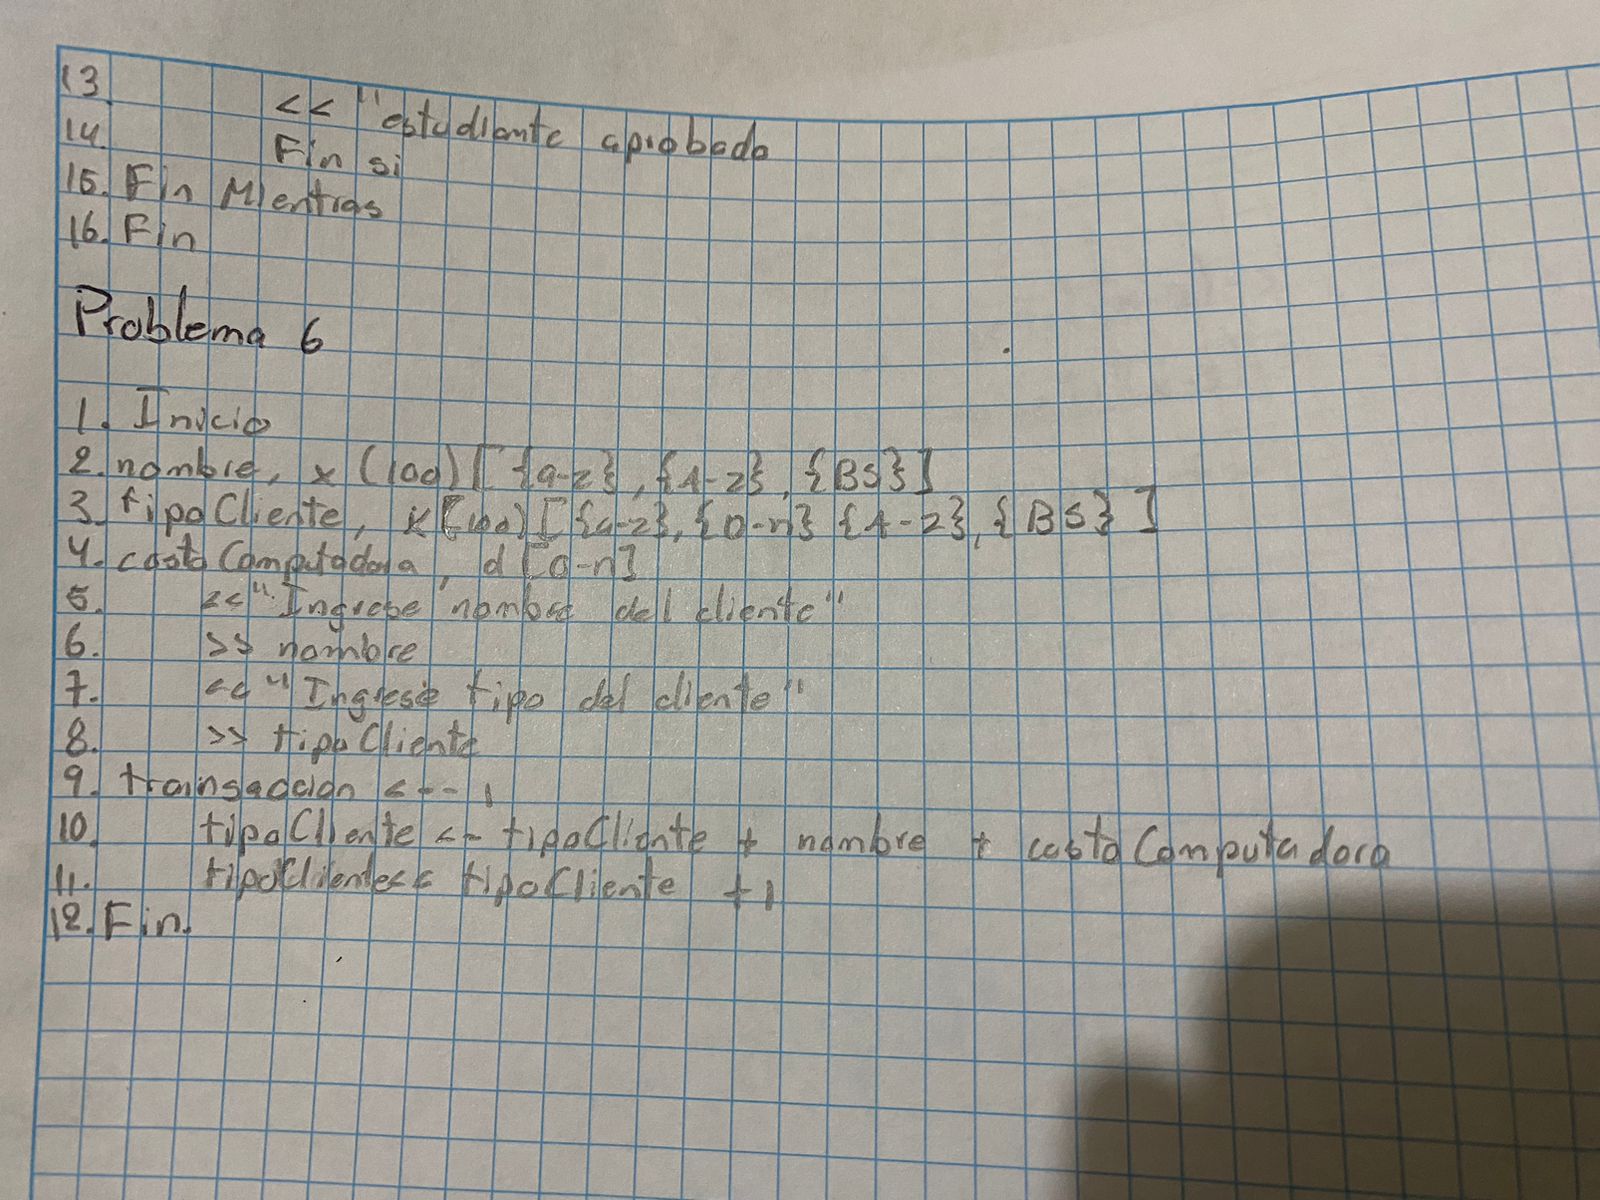 13. << "estudiante aprobado
14. Fin si
15. Fin Mientras
16. Fin
Problema 6
1. Inicio
2. nombre, x (100) [ {a-z}, {A-z}, {BS} ]
3. tipoCliente, x (100) [ {a-z}, {0-n} {A-z}, {BS} ]
4. costoComputadora, d [0-n]
5. << "Ingrese nombre del cliente"
6. >> nombre
7. << "Ingrese tipo del cliente"
8. >> tipoCliente
9. <-- 1
10. tipoCliente <- tipoCliente + nombre + costoComputadora
11. tipoCliente<< tipoCliente +1
12. Fin.